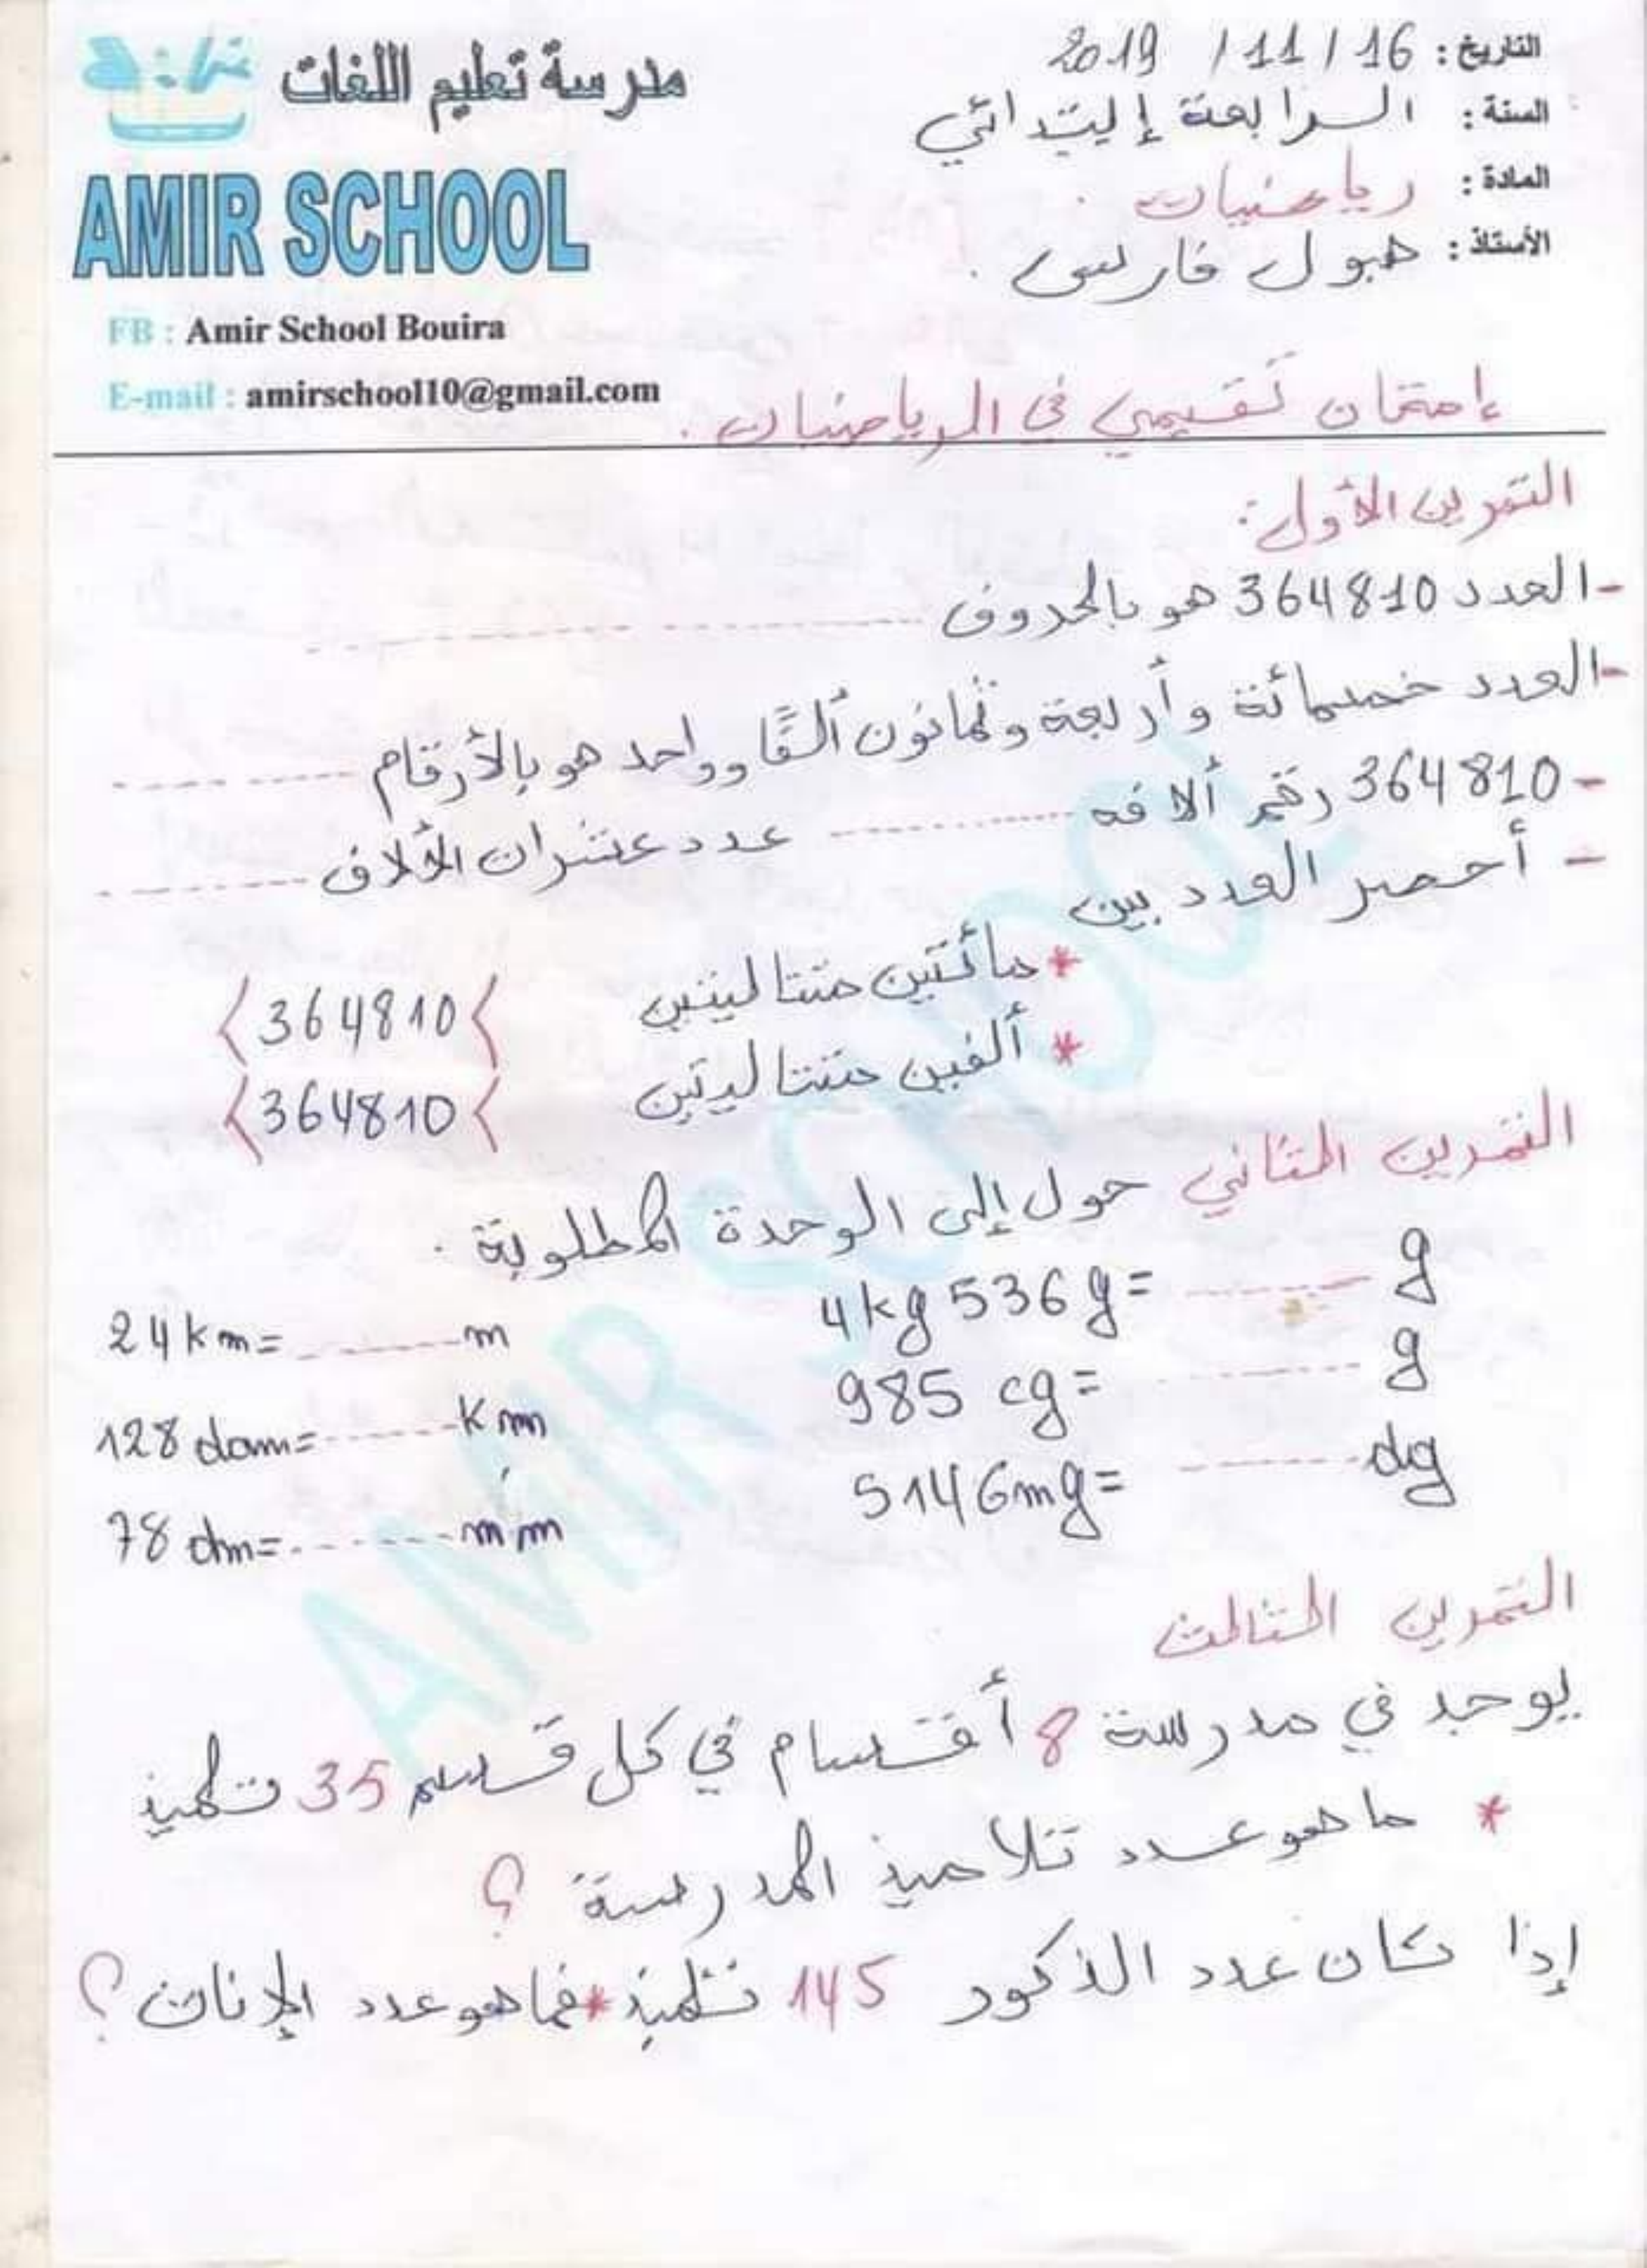 مدرسة تعليم اللغات
AMIR SCHOOL
FB : Amir School Bouira
E-mail : amirschool10@gmail.com
التاريخ : 16 / 11 / 2019
السنة : الرابعة إبتدائي
المادة : رياضيات .
الأستاذ : هبول فارس .
إمتحان تقييمي في الرياضيات .
التمرين الأول :
- العدد 364810 هو بالحروف ..........
- العدد خمسمائة وأربعة وثمانون ألفًا وواحد هو بالأرقام ..........
- 364810 رقم ألافه .......... عدد عشرات الألاف ..........
- أحصر العدد بين
* مائتين متتاليتين 〈364810〈
* ألفين متتاليتين 〈364810〈
التمرين الثاني حول إلى الوحدة المطلوبة .
4kg 536g= .......... g
24km= .......... m
985 cg= .......... g
128 dam= .......... km
5146mg= .......... dg
78 dm= .......... mm
التمرين الثالث
يوجد في مدرسة 8 أقسام في كل قسم 35 تلميذ
* ما هو عدد تلاميذ المدرسة ؟
إذا كان عدد الذكور 145 تلميذ * فما هو عدد الإناث ؟
AMIR SCHOOL